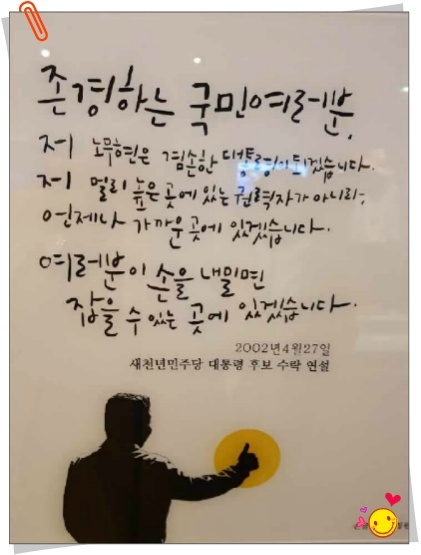 존경하는 국민여러분,
저 노무현은 겸손한 대통령이 되겠습니다.
저 멀리 높은 곳에 있는 권력자가 아니라,
언제나 가까운 곳에 있겠습니다.
여러분이 손을 내밀면
잡을 수 있는 곳에 있겠습니다.
2002년4월27일
새천년민주당 대통령 후보 수락 연설